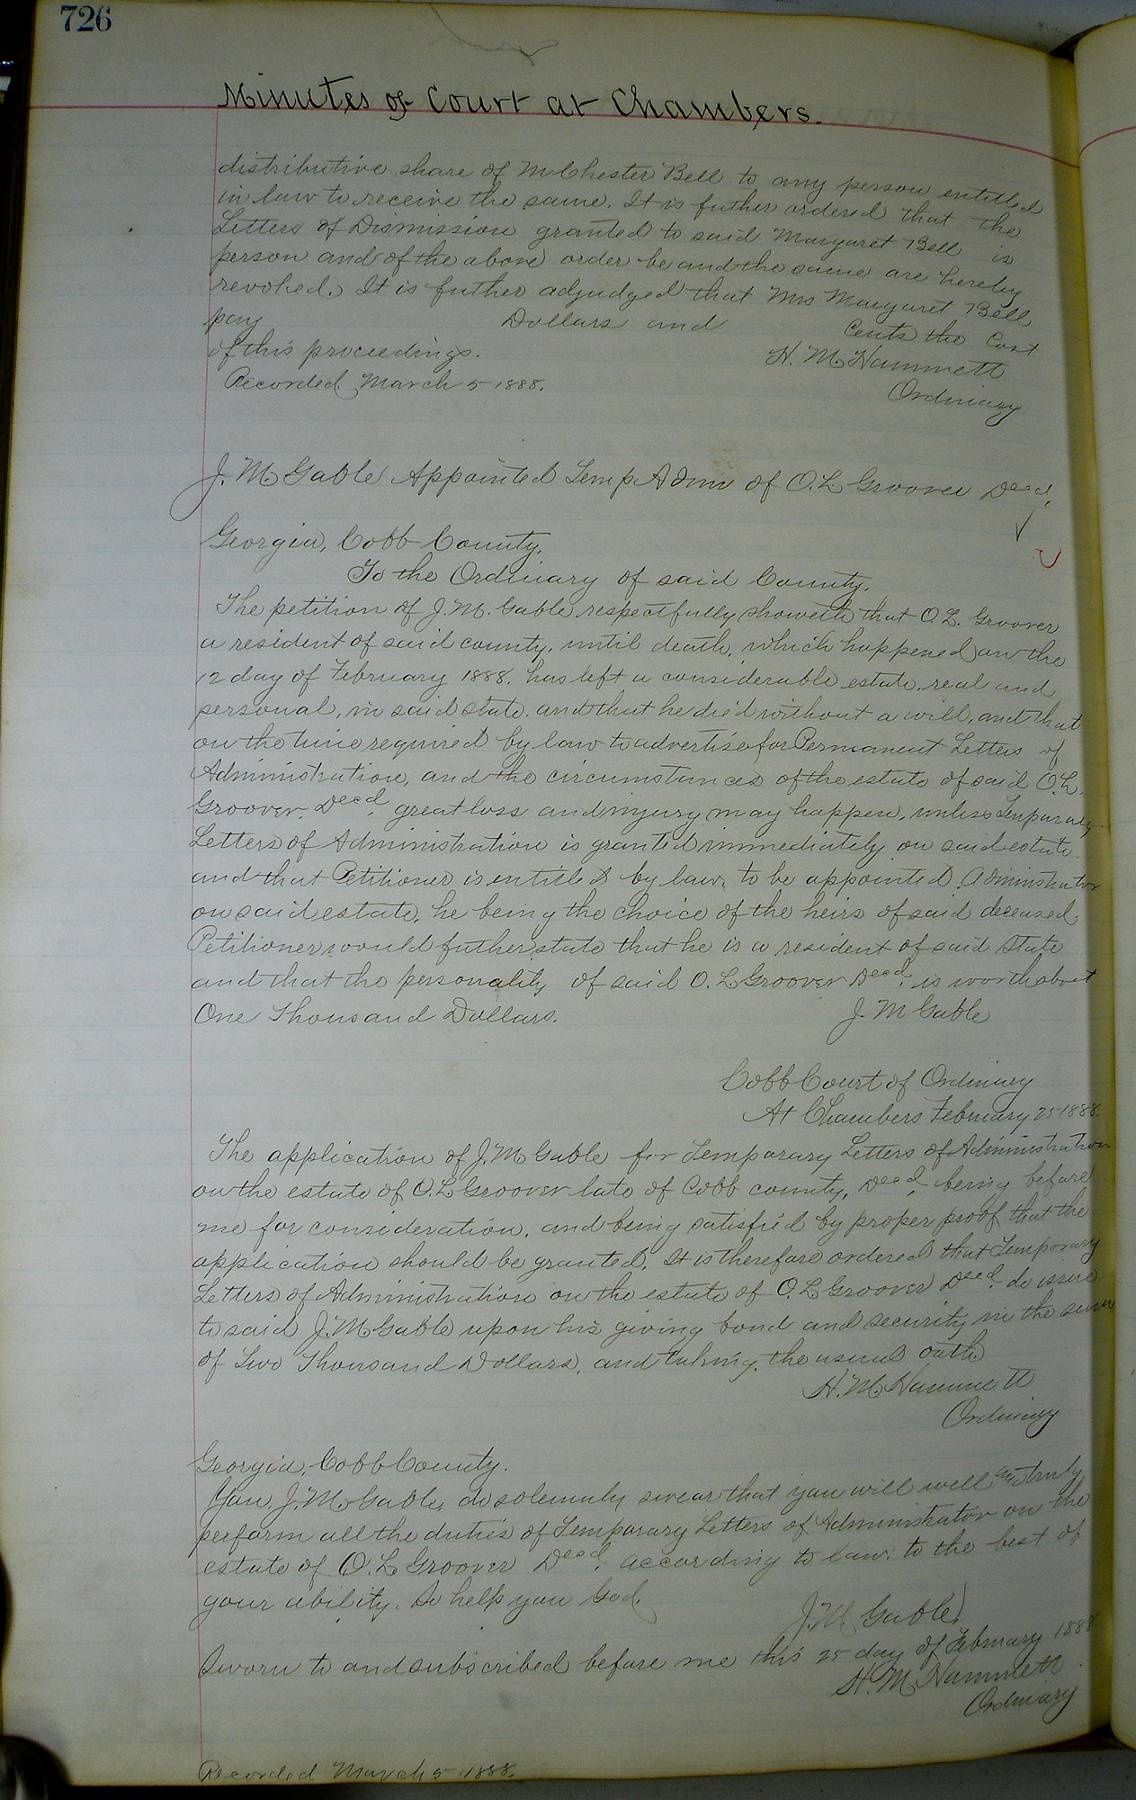 726
Minutes of Court at Chambers.
distributive share of M. Chester Bell to any person entitled
in law to receive the same. It is futher ordered that the
Letters of Dismission granted to said Margaret Bell is
person and of the above order be and the same are hereby
revoked. It is futher adjudged that Mrs Margaret Bell
pay Dollars and Cents the Cost
of this proceedings. H. M. Hammett
Recorded March 5 1888. Ordinary
J. M Gable Appointed Temp Admr of O. L Groover Decd.
Georgia, Cobb County.
To the Ordinary of said County.
The petition of J. M. Gable respectfully showeth that O. L. Groover
a resident of said county, until death, which happened on the
12 day of February 1888. has left a considerable estate real and
personal, in said state. and that he died without a will, and that
on the time required by law to advertise for Permanent Letters of
Administration, and the circumstances of the estate of said O. L.
Groover. Decd. great loss and injury may happen, unless Temporary
Letters of Administration is granted immediately on said estate
and that Petitioner is entitled by law, to be appointed Adminstrator
on said estate, he being the choice of the heirs of said deceased.
Petitioner would futher state that he is a resident of said State
and that the personality of said O. L Groover Decd. is worth about
One Thousand Dollars. J. M Gable
Cobb Court of Ordinary
At Chambers February 25 1888.
The application of J. M Gable for Temporary Letters of Administration
on the estate of O. L Groover late of Cobb county, Decd. being before
me for consideration, and being satisfied by proper proof that the
application should be granted. It is therefore ordered that Temporary
Letters of Administration on the estate of O. L Groover Decd. do issue
to said J. M Gable upon his giving bond and security in the sum
of Two Thousand Dollars, and taking the usual oath.
H. M. Hammett
Ordinary
Georgia, Cobb County.
You, J. M. Gable, do solemnly swear that you will well and truly
perform all the duties of Temporary Letters of Administrator on the
estate of O. L Groover Decd. according to law. to the best of
your ability. So help you God.
J. M. Gable.
Sworn to and subscribed before me this 25 day of February 1888
H. M. Hammett
Ordinary
Recorded March 5 1888.